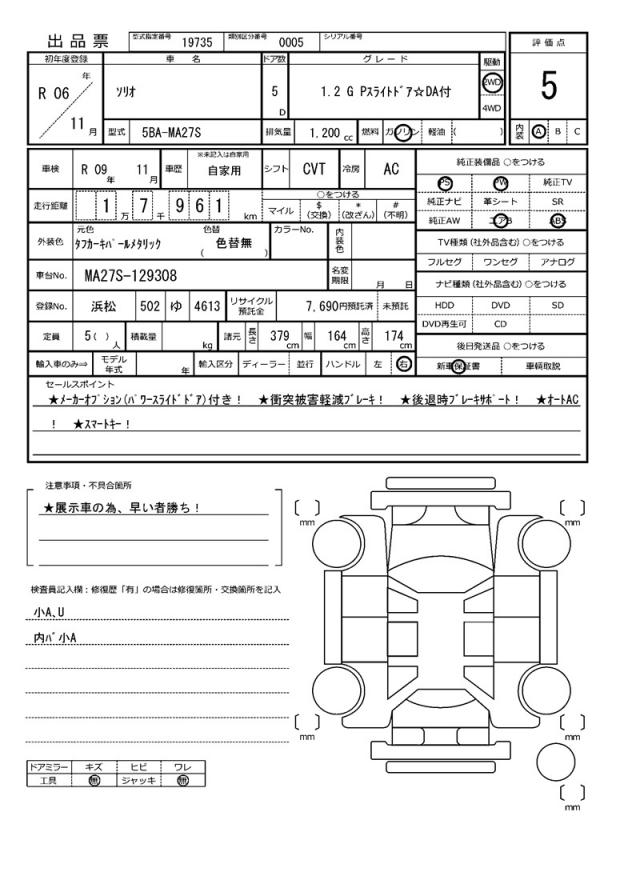 出品票 型式指定番号 19735 類別区分番号 0005 シリアル番号
評価点
5
内装 A B C
初年度登録 車名 ドア数 グレード 駆動
R 06 年 11 月 ソリオ 5 D 1.2 G Pスライトドア☆DA付 2WD 4WD
型式 5BA-MA27S 排気量 1.200 cc 燃料 ガソリン 軽油 ( )
車検 R 09 年 11 月 車歴 ※未記入は自家用 自家用 シフト CVT 冷房 AC
走行距離 1 万 7 千 9 6 1 km ○をつける
マイル $ (交換) * (改ざん) # (不明)
外装色 元色 タフカーキパールメタリック 色替 ( 色替無 ) カラーNo. 内装色
車台No. MA27S-129308 名変期限 月 日
登録No. 浜松 502 ゆ 4613 リサイクル預託金 7,690円預託済 未預託
定員 5( ) 人 積載量 kg 諸元 長さ 379 cm 幅 164 cm 高さ 174 cm
輸入車のみ⇒ モデル年式 年 輸入区分 ディーラー 並行 ハンドル 左 右
純正装備品 ○をつける
PS PW 純正TV
純正ナビ 革シート SR
純正AW エアB ABS
TV種類 (社外品含む) ○をつける
フルセグ ワンセグ アナログ
ナビ種類 (社外品含む) ○をつける
HDD DVD SD
DVD再生可 CD
後日発送品 ○をつける
新車保証書 車輌取説
セールスポイント
★メーカーオプション(パワースライドドア)付き! ★衝突被害軽減ブレーキ! ★後退時ブレーキサポート! ★オートAC
! ★スマートキー!
注意事項・不具合箇所
★展示車の為、早い者勝ち!
検査員記入欄:修復歴「有」の場合は修復箇所・交換箇所を記入
小A、U
内バ小A
ドアミラー キズ ヒビ ワレ
工具 無 ジャッキ 無
mm
mm
mm
mm
mm